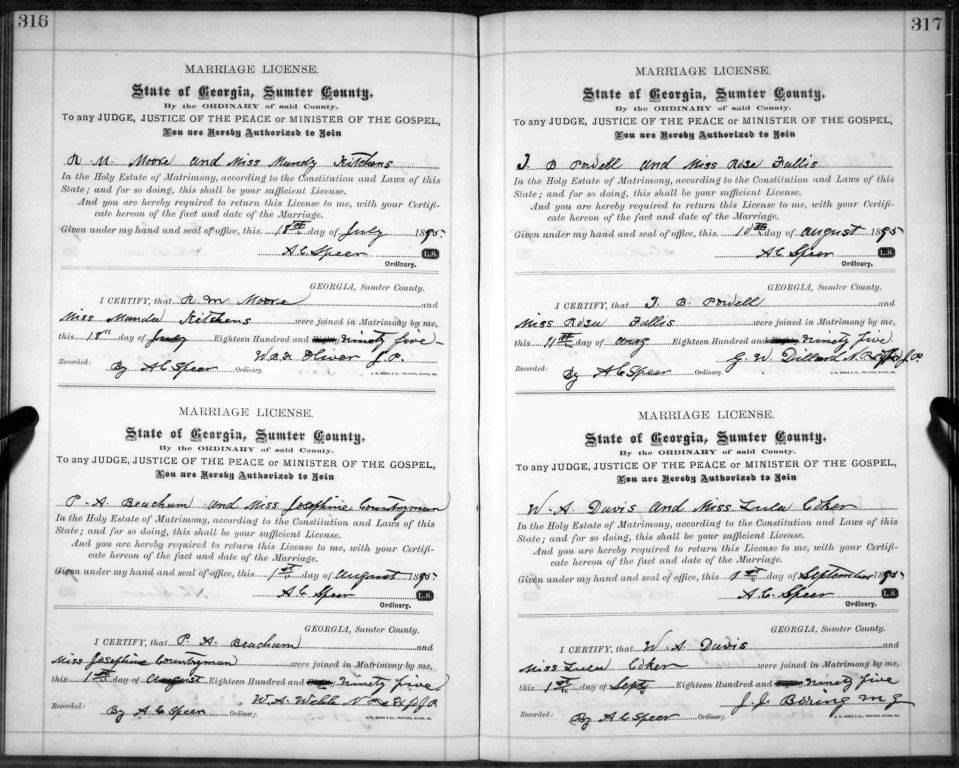 316
MARRIAGE LICENSE.
State of Georgia, Sumter County.
By the ORDINARY of said County.
To any JUDGE, JUSTICE OF THE PEACE or MINISTER OF THE GOSPEL,
You are Hereby Authorized to Join
R. M. Moore and Miss Mandy Kitchens
In the Holy Estate of Matrimony, according to the Constitution and Laws of this
State; and for so doing, this shall be your sufficient License.
And you are hereby required to return this License to me, with your Certifi-
cate hereon of the fact and date of the Marriage.
Given under my hand and seal of office, this 18th day of July 1895
A C Speer L.S.
Ordinary.
GEORGIA, Sumter County.
I CERTIFY, that R M Moore and
Miss Manda Kitchens were joined in Matrimony by me,
this 18th day of July Eighteen Hundred and ninety five
Oliver J.P.
Recorded: By A C Speer Ordinary.
MARRIAGE LICENSE.
State of Georgia, Sumter County.
By the ORDINARY of said County.
To any JUDGE, JUSTICE OF THE PEACE or MINISTER OF THE GOSPEL,
You are Hereby Authorized to Join
P. A Beacham and Miss Josephine Countryman
In the Holy Estate of Matrimony, according to the Constitution and Laws of this
State; and for so doing, this shall be your sufficient License.
And you are hereby required to return this License to me, with your Certifi-
cate hereon of the fact and date of the Marriage.
Given under my hand and seal of office, this 1st day of August 1895
A C Speer L.S.
Ordinary.
GEORGIA, Sumter County.
I CERTIFY, that P. A. Beacham and
Miss Josephine Countryman were joined in Matrimony by me,
this 1st day of August Eighteen Hundred and ninety five
W. A. Webb N P & Ex of J.P.
Recorded: By A C Speer Ordinary.
317
MARRIAGE LICENSE.
State of Georgia, Sumter County.
By the ORDINARY of said County.
To any JUDGE, JUSTICE OF THE PEACE or MINISTER OF THE GOSPEL,
You are Hereby Authorized to Join
T. B Powell and Miss Rose Fallis
In the Holy Estate of Matrimony, according to the Constitution and Laws of this
State; and for so doing, this shall be your sufficient License.
And you are hereby required to return this License to me, with your Certifi-
cate hereon of the fact and date of the Marriage.
Given under my hand and seal of office, this 10th day of August 1895
A C Speer L.S.
Ordinary.
GEORGIA, Sumter County.
I CERTIFY, that T. B. Powell and
Miss Rose Fallis were joined in Matrimony by me,
this 11th day of Aug Eighteen Hundred and ninety five
G. W. Dillard N. P. J.P.
Recorded: By A C Speer Ordinary.
MARRIAGE LICENSE.
State of Georgia, Sumter County.
By the ORDINARY of said County.
To any JUDGE, JUSTICE OF THE PEACE or MINISTER OF THE GOSPEL,
You are Hereby Authorized to Join
W. A Davis and Miss Lula Coker
In the Holy Estate of Matrimony, according to the Constitution and Laws of this
State; and for so doing, this shall be your sufficient License.
And you are hereby required to return this License to me, with your Certifi-
cate hereon of the fact and date of the Marriage.
Given under my hand and seal of office, this 1st day of September 1895
A. C. Speer L.S.
Ordinary.
GEORGIA, Sumter County.
I CERTIFY, that W. A Davis and
Miss Lula Coker were joined in Matrimony by me,
this 1st day of Sept Eighteen Hundred and ninety five
J. J. Boring M G
Recorded: By A C Speer Ordinary.